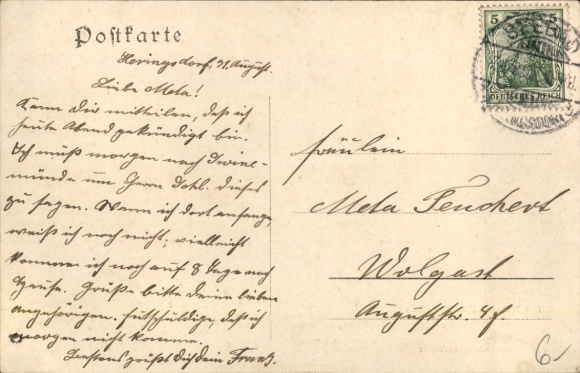 Postkarte
Heringsdorf, 31. August.
Liebe Meta!
Kann Dir mitteilen, daß ich
heute Abend gekündigt bin.
Ich muß morgen nach Swine-
münde um Herrn Dohl. dieses
zu sagen. Wann ich dort anfange,
weiß ich noch nicht; vielleicht
komme ich noch auf 8 Tage nach
Hause. Grüße bitte deine lieben
angehörigen. Entschuldige, daß ich
morgen nicht komme.
Bestens grüßt Dich dein Franz.
5 5
DEUTSCHES REICH
SEEBAD
Fräulein
Meta Teuchert
Wolgast
Auguststr. 4f
6-